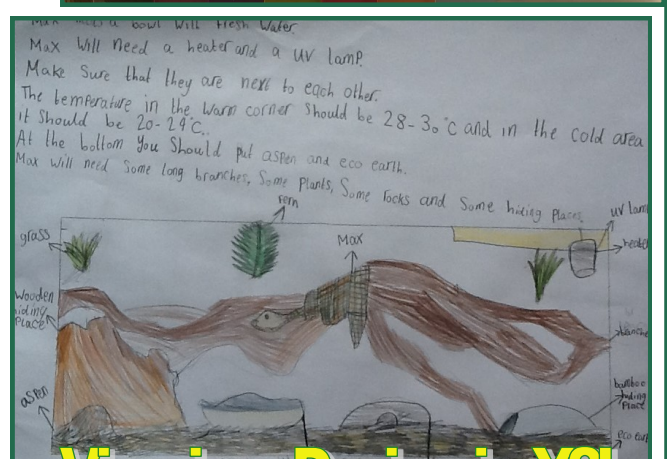 a bowl will fresh water.
Max will need a heater and a UV lamp.
Make sure that they are next to each other.
The temperature in the warm corner should be 28-30°C and in the cold area
it should be 20-24°C.
At the bottom you should put aspen and eco earth.
Max will need some long branches, some plants, some rocks and some hiding places.
fern
uv lam
grass
Max
heate
wooden
hiding
place
branche
aspen
bamboo
hiding
place
eco ear